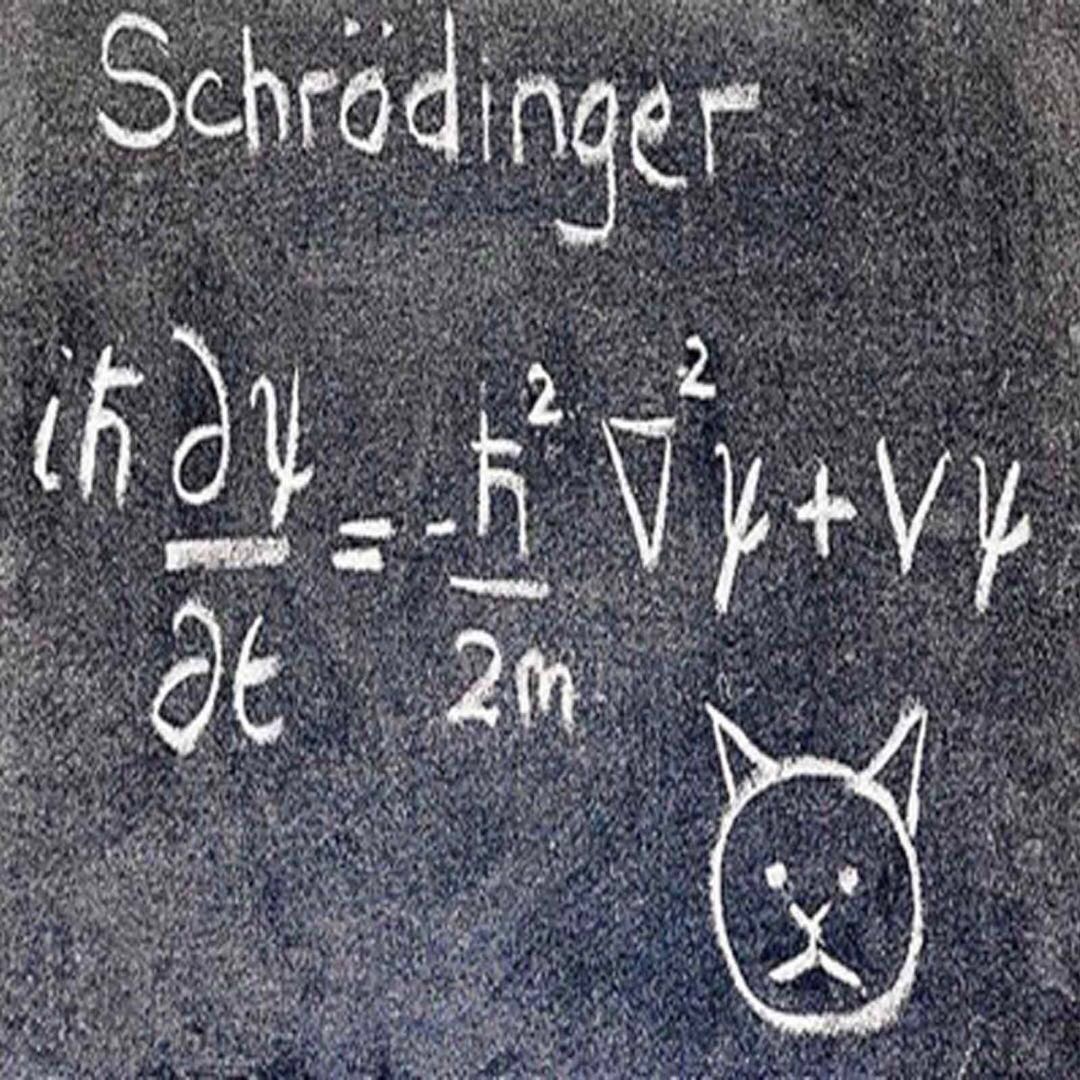 Schrödinger
iℏ ∂ψ/∂t = -ℏ²/2m ∇²ψ + Vψ